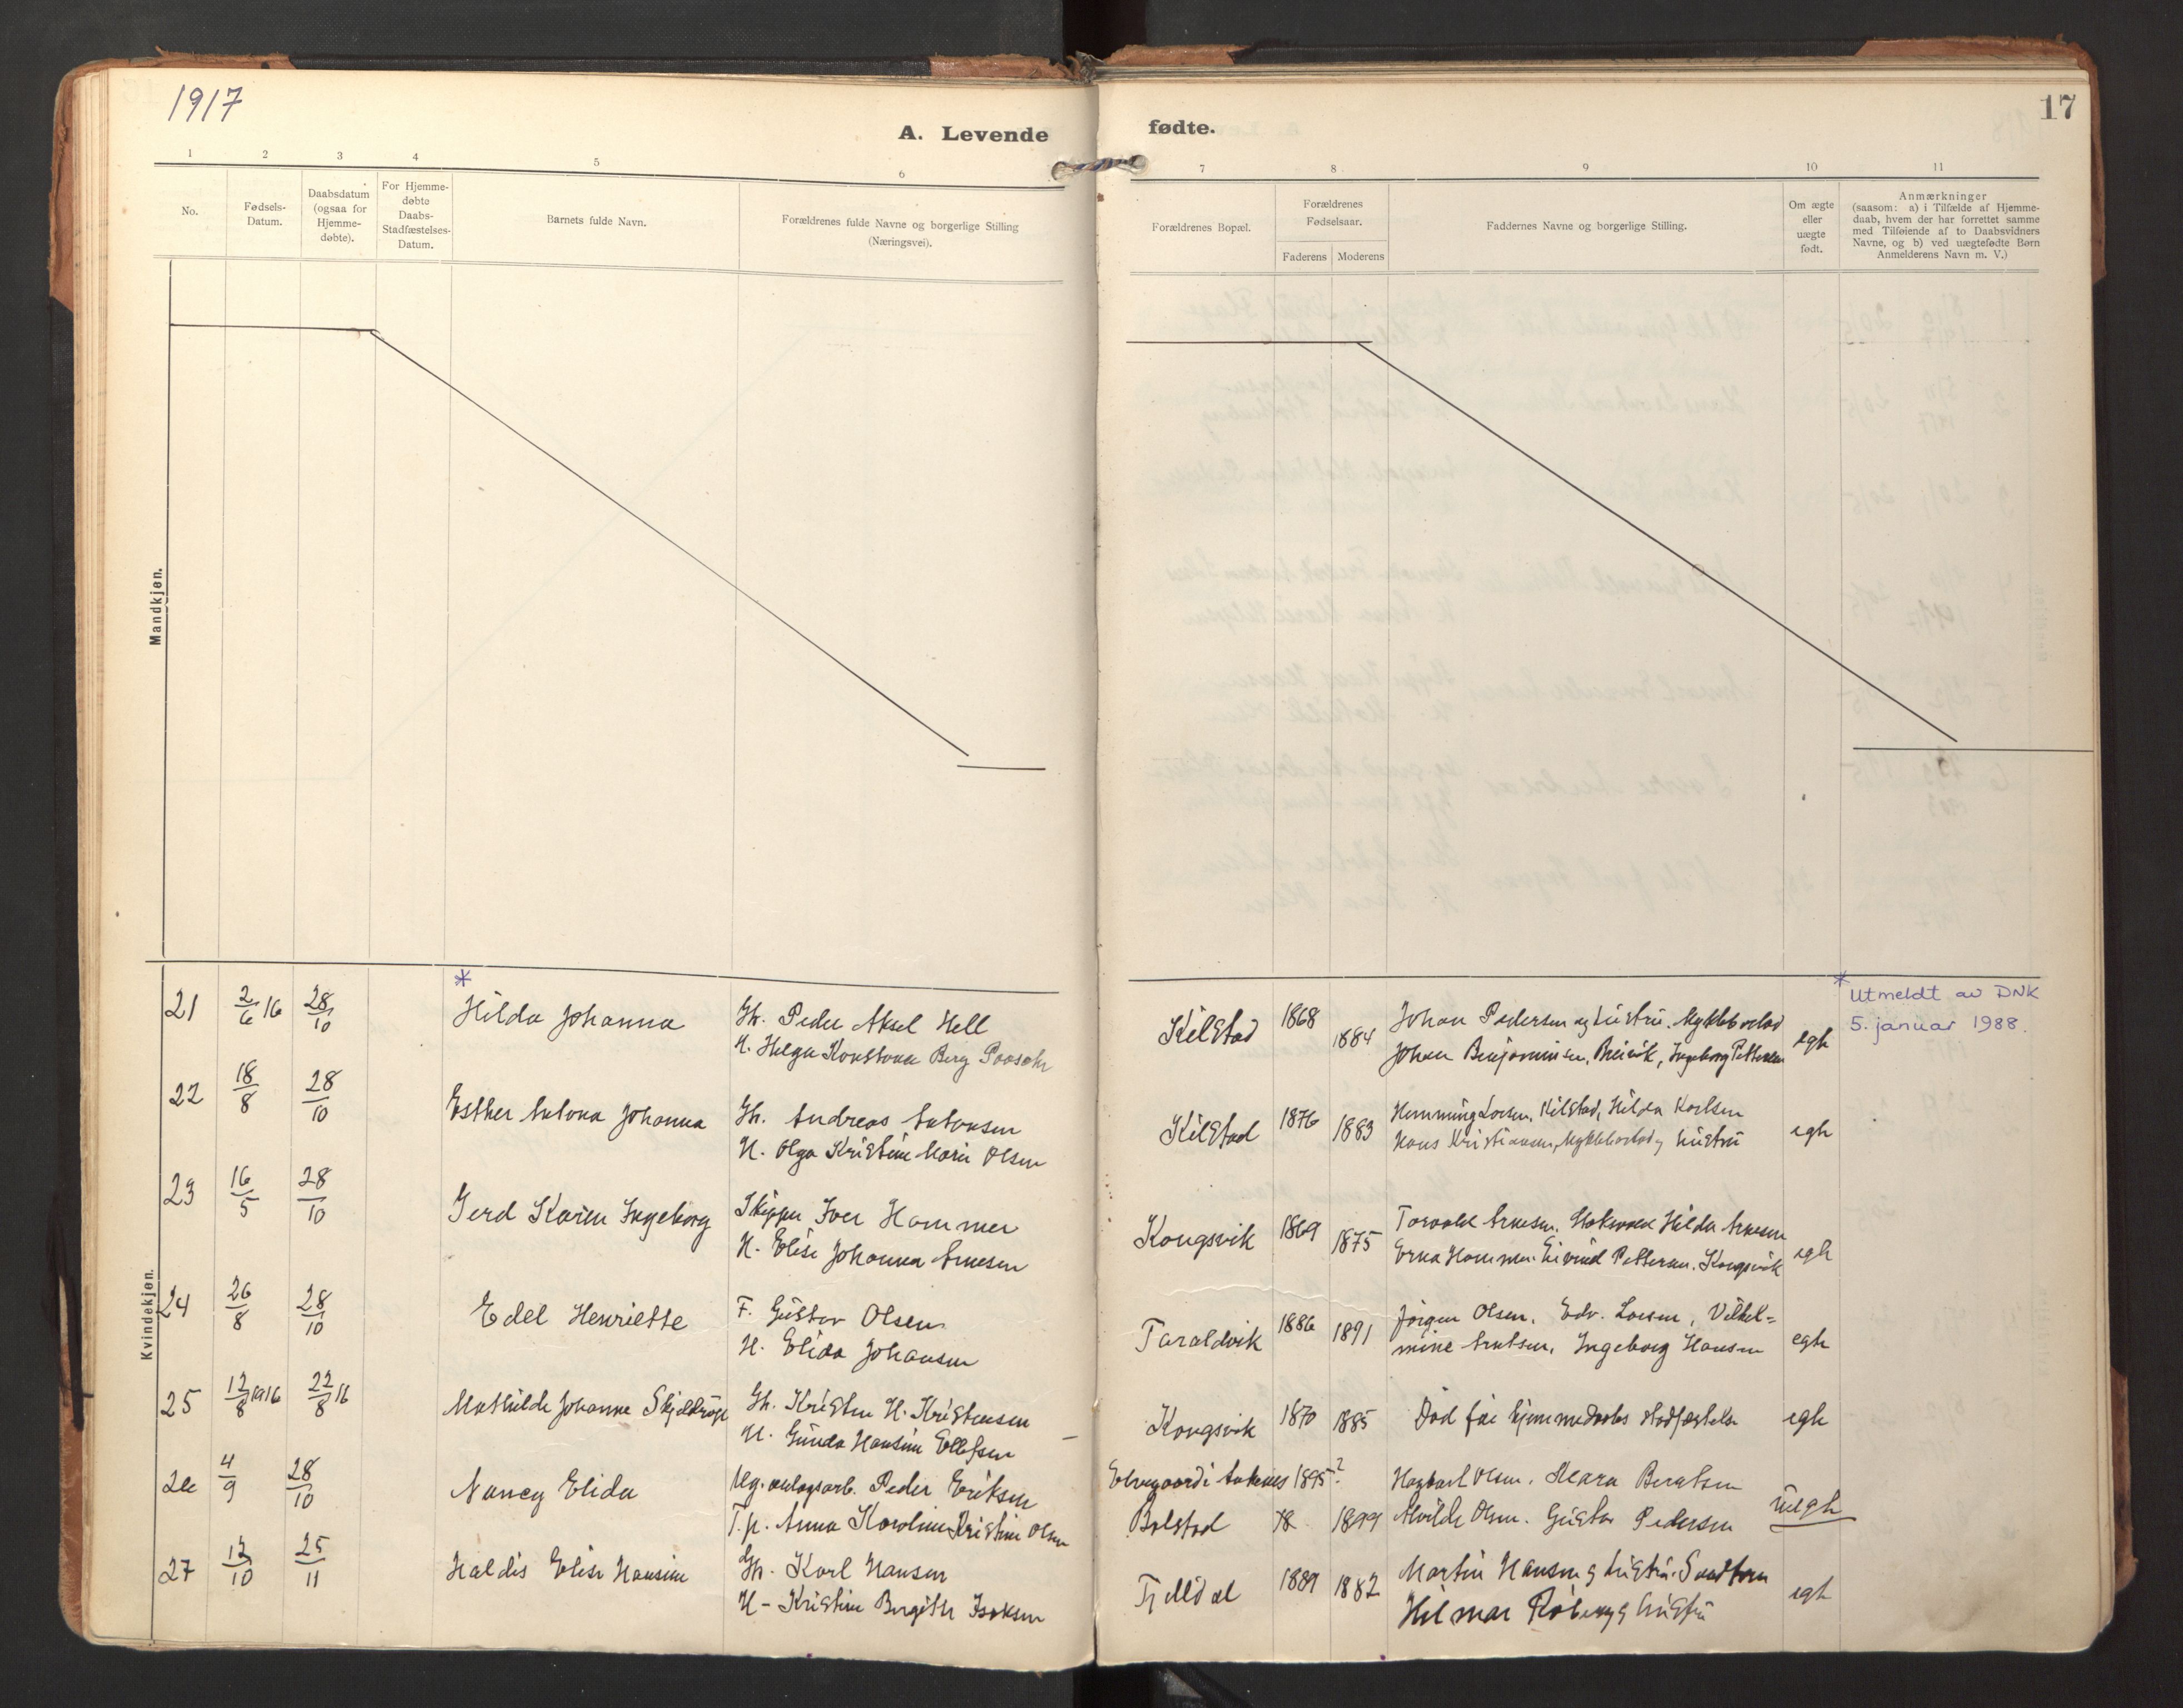 1917
A. Levende
fødte.
17
1 2 3 4 5 6
7 8 9 10 11
No.
Fødsels-
Datum.
Daabsdatum
(ogsaa for
Hjemme-
døbte).
For Hjemme-
døbte
Daabs-
Stadfæstelses-
Datum.
Barnets fulde Navn.
Forældrenes fulde Navne og borgerlige Stilling
(Næringsvei).
Forældrenes Bopæl.
Forældrenes
Fødselsaar.
Faderens Moderens
Faddernes Navne og borgerlige Stilling.
Om ægte
eller
uægte
født.
Anmærkninger
(saasom: a) i Tilfælde af Hjemme-
daab, hvem der har forrettet samme
med Tilføiende af to Daabsvidners
Navne, og b) ved uægtefødte Børn
Anmelderens Navn m. V.)
Mandkjøn.
Kvindekjøn.
*
21 2/6 16 28/10 Hilda Johanna Gh. Peder Aksel Hell
H. Helga Konstanse Berg
Kilstad 1868 1884 Johan Pedersen og hustru. Myklebostad
Johan Benjaminsen, Breivik, Ingeborg Pettersen egte
* Utmeldt av DNK
5. januar 1988.
22 18/8 28/10 Esther Antona Johanna Gh. Andreas Antonsen
H. Olga Kristine Marie Olsen
Kilstad 1876 1883 Hemming Larsen, Kilstad, Hilda Karlsen
Hans Kristiansen, Myklebostad og hustru egte
23 16/5 28/10 Gerd Karen Ingeborg Skipper Iver Hammer
H. Elise Johanna Arnesen
Kongsvik 1869 1875 Torvald Arnesen. Hilda Arnesen
Erna Hammer. Eivind Pettersen. Kongsvik egte
24 26/8 28/10 Edel Henriette F. Gustav Olsen
H. Elida Johansen
Taraldvik 1886 1891 Jørgen Olsen, Edv. Larsen, Vilhel=
mine Arntsen, Ingeborg Hansen egte
25 12/8 1916 22/8 16 Mathilde Johanne Gh. Kristen H. Kristensen
H. Gunda Hansine Ellefsen
Kongsvik 1870 1885 Død før hjemmedaabs stadfæstelse egte
26 4/9 28/10 Nancy Elida Ug. anlægsarb. Peder Eriksen
T.p. Anna Karoline Kristine Olsen
Elvegaard i Ankenes 1895?
Bolstad 1899 Hagbart Olsen. Klara Berntsen
Alvilde Olsen. Gustav Pedersen uegte
27 12/10 25/11 Haldis Elise Hansine Gh. Karl Hansen
H- Kristine Bergitte Isaksen
Fjelldal 1889 1882 Martin Hansen og hustru. Sandtorv
Hilmar og hustru egte